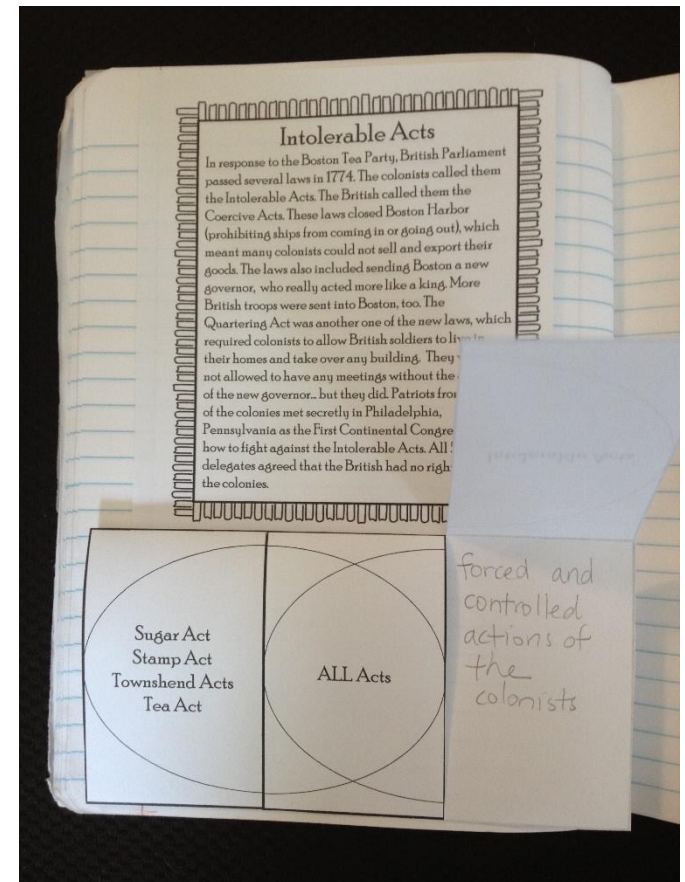 Intolerable Acts
In response to the Boston Tea Party, British Parliament
passed several laws in 1774. The colonists called them
the Intolerable Acts. The British called them the
Coercive Acts. These laws closed Boston Harbor
(prohibiting ships from coming in or going out), which
meant many colonists could not sell and export their
goods. The laws also included sending Boston a new
governor, who really acted more like a king. More
British troops were sent into Boston, too. The
Quartering Act was another one of the new laws, which
required colonists to allow British soldiers to live in
their homes and take over any building. They
not allowed to have any meetings without the
of the new governor... but they did. Patriots
of the colonies met secretly in Philadelphia,
Pennsylvania as the First Continental
how to fight against the Intolerable Acts. All
delegates agreed that the British had no
the colonies.
Sugar Act
Stamp Act
Townshend Acts
Tea Act
ALL Acts
forced and
controlled
actions of
the
colonists